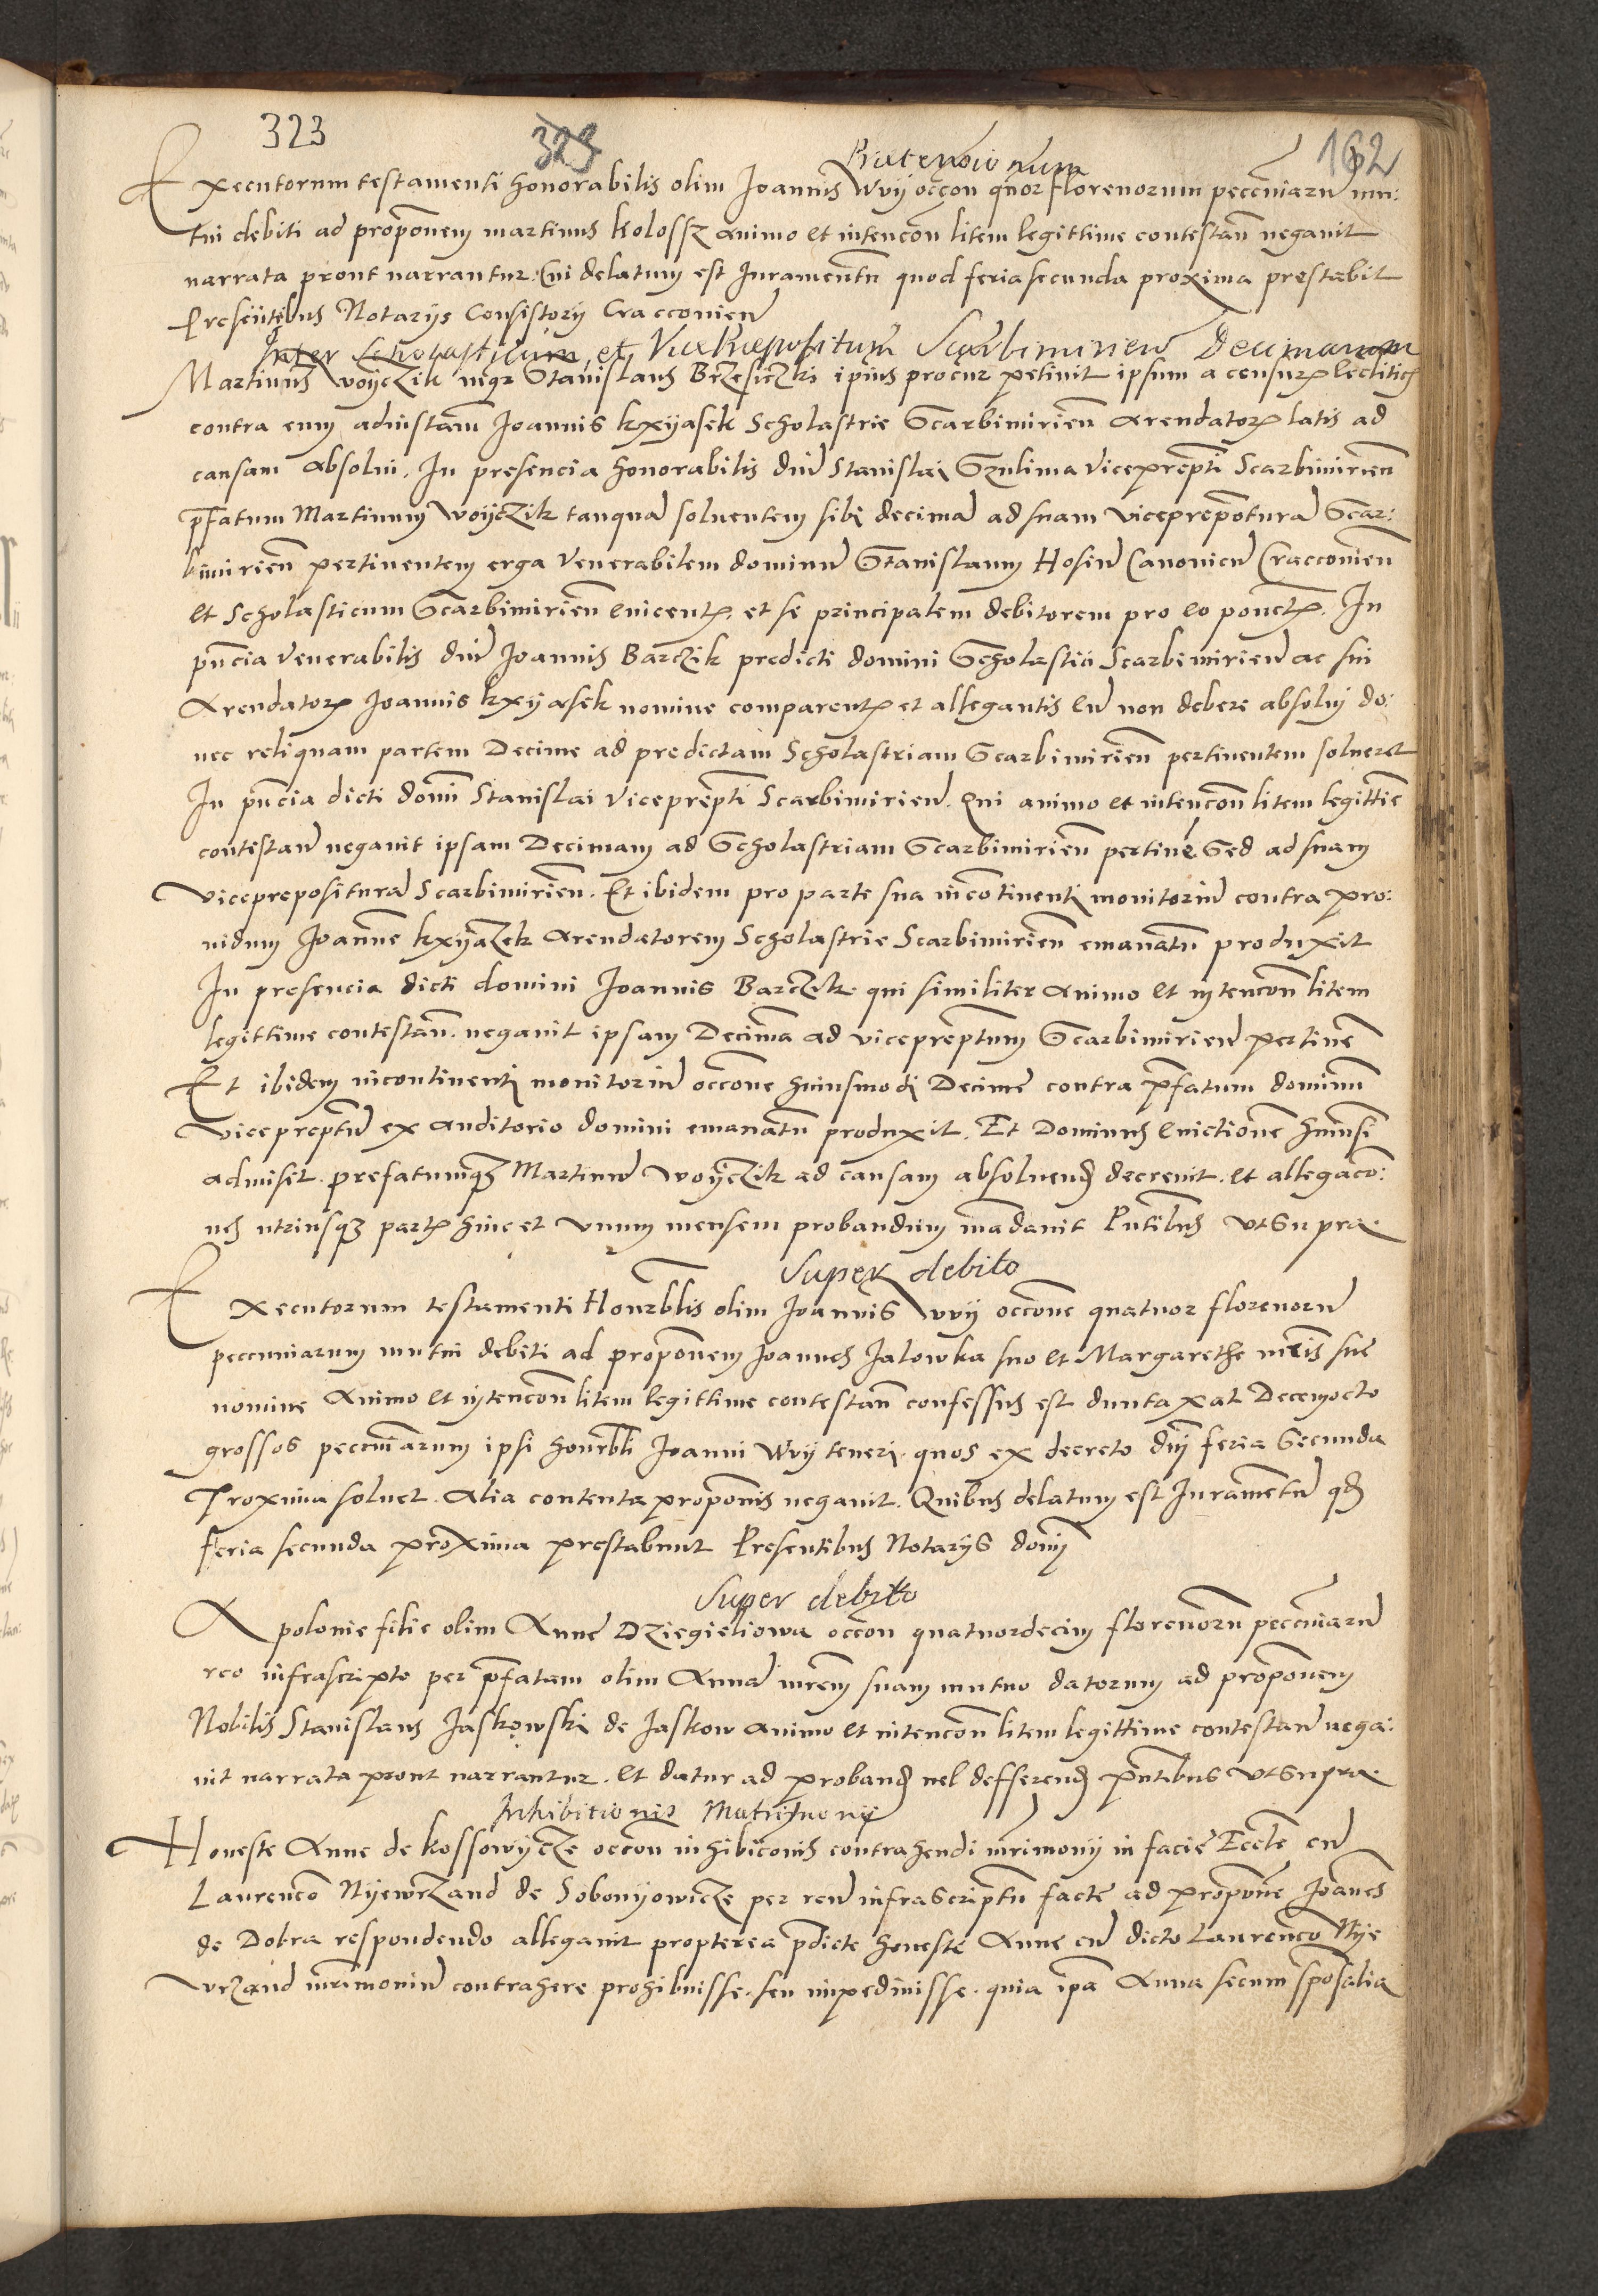 323 323 162
Praetensionum
Executorum testamenti honorabilis olim Joannis Wvij occon quor florenorum peccuniaru mu:
tui debiti ad proponem martinus Kolossz animo et intencon litem legittime contestan negauit
narrata prout narrantur. Cui delatum est Juramentu quod feria secunda proxima prestabit
Presentibus Notarijs Consistorij Craccouien
Inter Scholasticum et Vicepraepositum Scarbimirien Decimarum
Martinus woyczik mgr Stanislaus Brzesiczki ipius procur petiuit ipsum a censur
contra eum ad instam Joannis kxyasek Scholastrie Scarbimirien Arendator latis ad
causam absolui. In presencia honorabilis dni Stanislai Gzulima vicepreptti Scarbimirien
pfatum Martinum woyczik tanqua soluentem sibi decima ad suam vicepreposturа Scar:
bimirien pertinentem erga Venerabilem dominu Stanislaum Hosiu Canonicu Craccouien
et Scholasticum Scarbimirien euicent et se principalem debitorem pro eo ponent. In
pncia Venerabilis dni Joannis Barczik predicti domini Scholastici Scarbimirien ac sui
Arendator Joannis kxyasek nomine comparent et allegantis eu non debere absolui do:
nec reliquam partem Decime ad predictam Scholastriam Scarbimirien pertinentem solueret
In pncia dicti domi Stanislai vicepreptti Scarbimirien. Qui animo et intencon litem legittie
contestan negauit ipsam Decimam ad Scholastriam Scarbimirien pertine Sed ad suam
viceprepositura Scarbimirien. Et ibidem pro parte sua incontinenti monitoriu contra pro:
uidum Joanne kxyazek Arendatorem Scholastrie Scarbimirien emanatu produxit
In presencia dicti domini Joannis Barczik qui similiter animo et intencon litem
legittime contestan. negauit ipsam Decima ad vicepreptum Scarbimirien pertine
Et ibidem incontinenti monitoriu occone huiusmodi Decime contra pfatum dominu
vicepreptu ex auditorio domini emanatu produxit. Et Dominus euictione huiusi
admisit. prefatumqz Martinu woyczik ad causam absoluend decreuit. et allegaco:
nes utriusqz part hinc et unum mensem probandum madauit Pntibus vt supra
Super debito
Executorum testamenti Honrbilis olim Joannis wvij occone quatuor florenoru
peccuniarum mutui debiti ad proponem Joannes Jalowka suo et Margarethe mris sue
nomine Animo et intencon litem legittime contestan confessus est duntaxat Decemocto
grossos peccuniarum ipsi honrbli Joanni Wvij teneri. quos ex decreto dni feria secunda
Proxima soluet. Alia contenta proponis negauit. Quibus delatum est Juramentu qd
feria secunda proxima prestabunt Presentibus Notarijs domi
Super debito
Apolonie filie olim Anne Dziegieliowa occon quatuordecim florenoru peccuniaru
reo infrascripto per pfatam olim Anna mrem suam mutuo datorum ad proponem
Nobilis Stanislaus Jaskowski de Jaskow animo et intencon litem legittime contestan nega:
uit narrata prout narrantur. et datur ad proband uel defferend pntibus vt supra
Inhibitionis Matrimonij
Honeste Anne de kossowycze occon inhibiconis contrahendi mrimonij in facie Eccle cu
Laurenco Nyewrzand de Sobonyowicze per reu infrascriptu facte ad propone Joanes
de Dobra respondendo allegauit propterea pdicte honeste Anne cu dicto Laurenco Nye
wrzand mrimoniu contrahere prohibuisse. seu impediuisse. quia ipa Anna secum sposalia